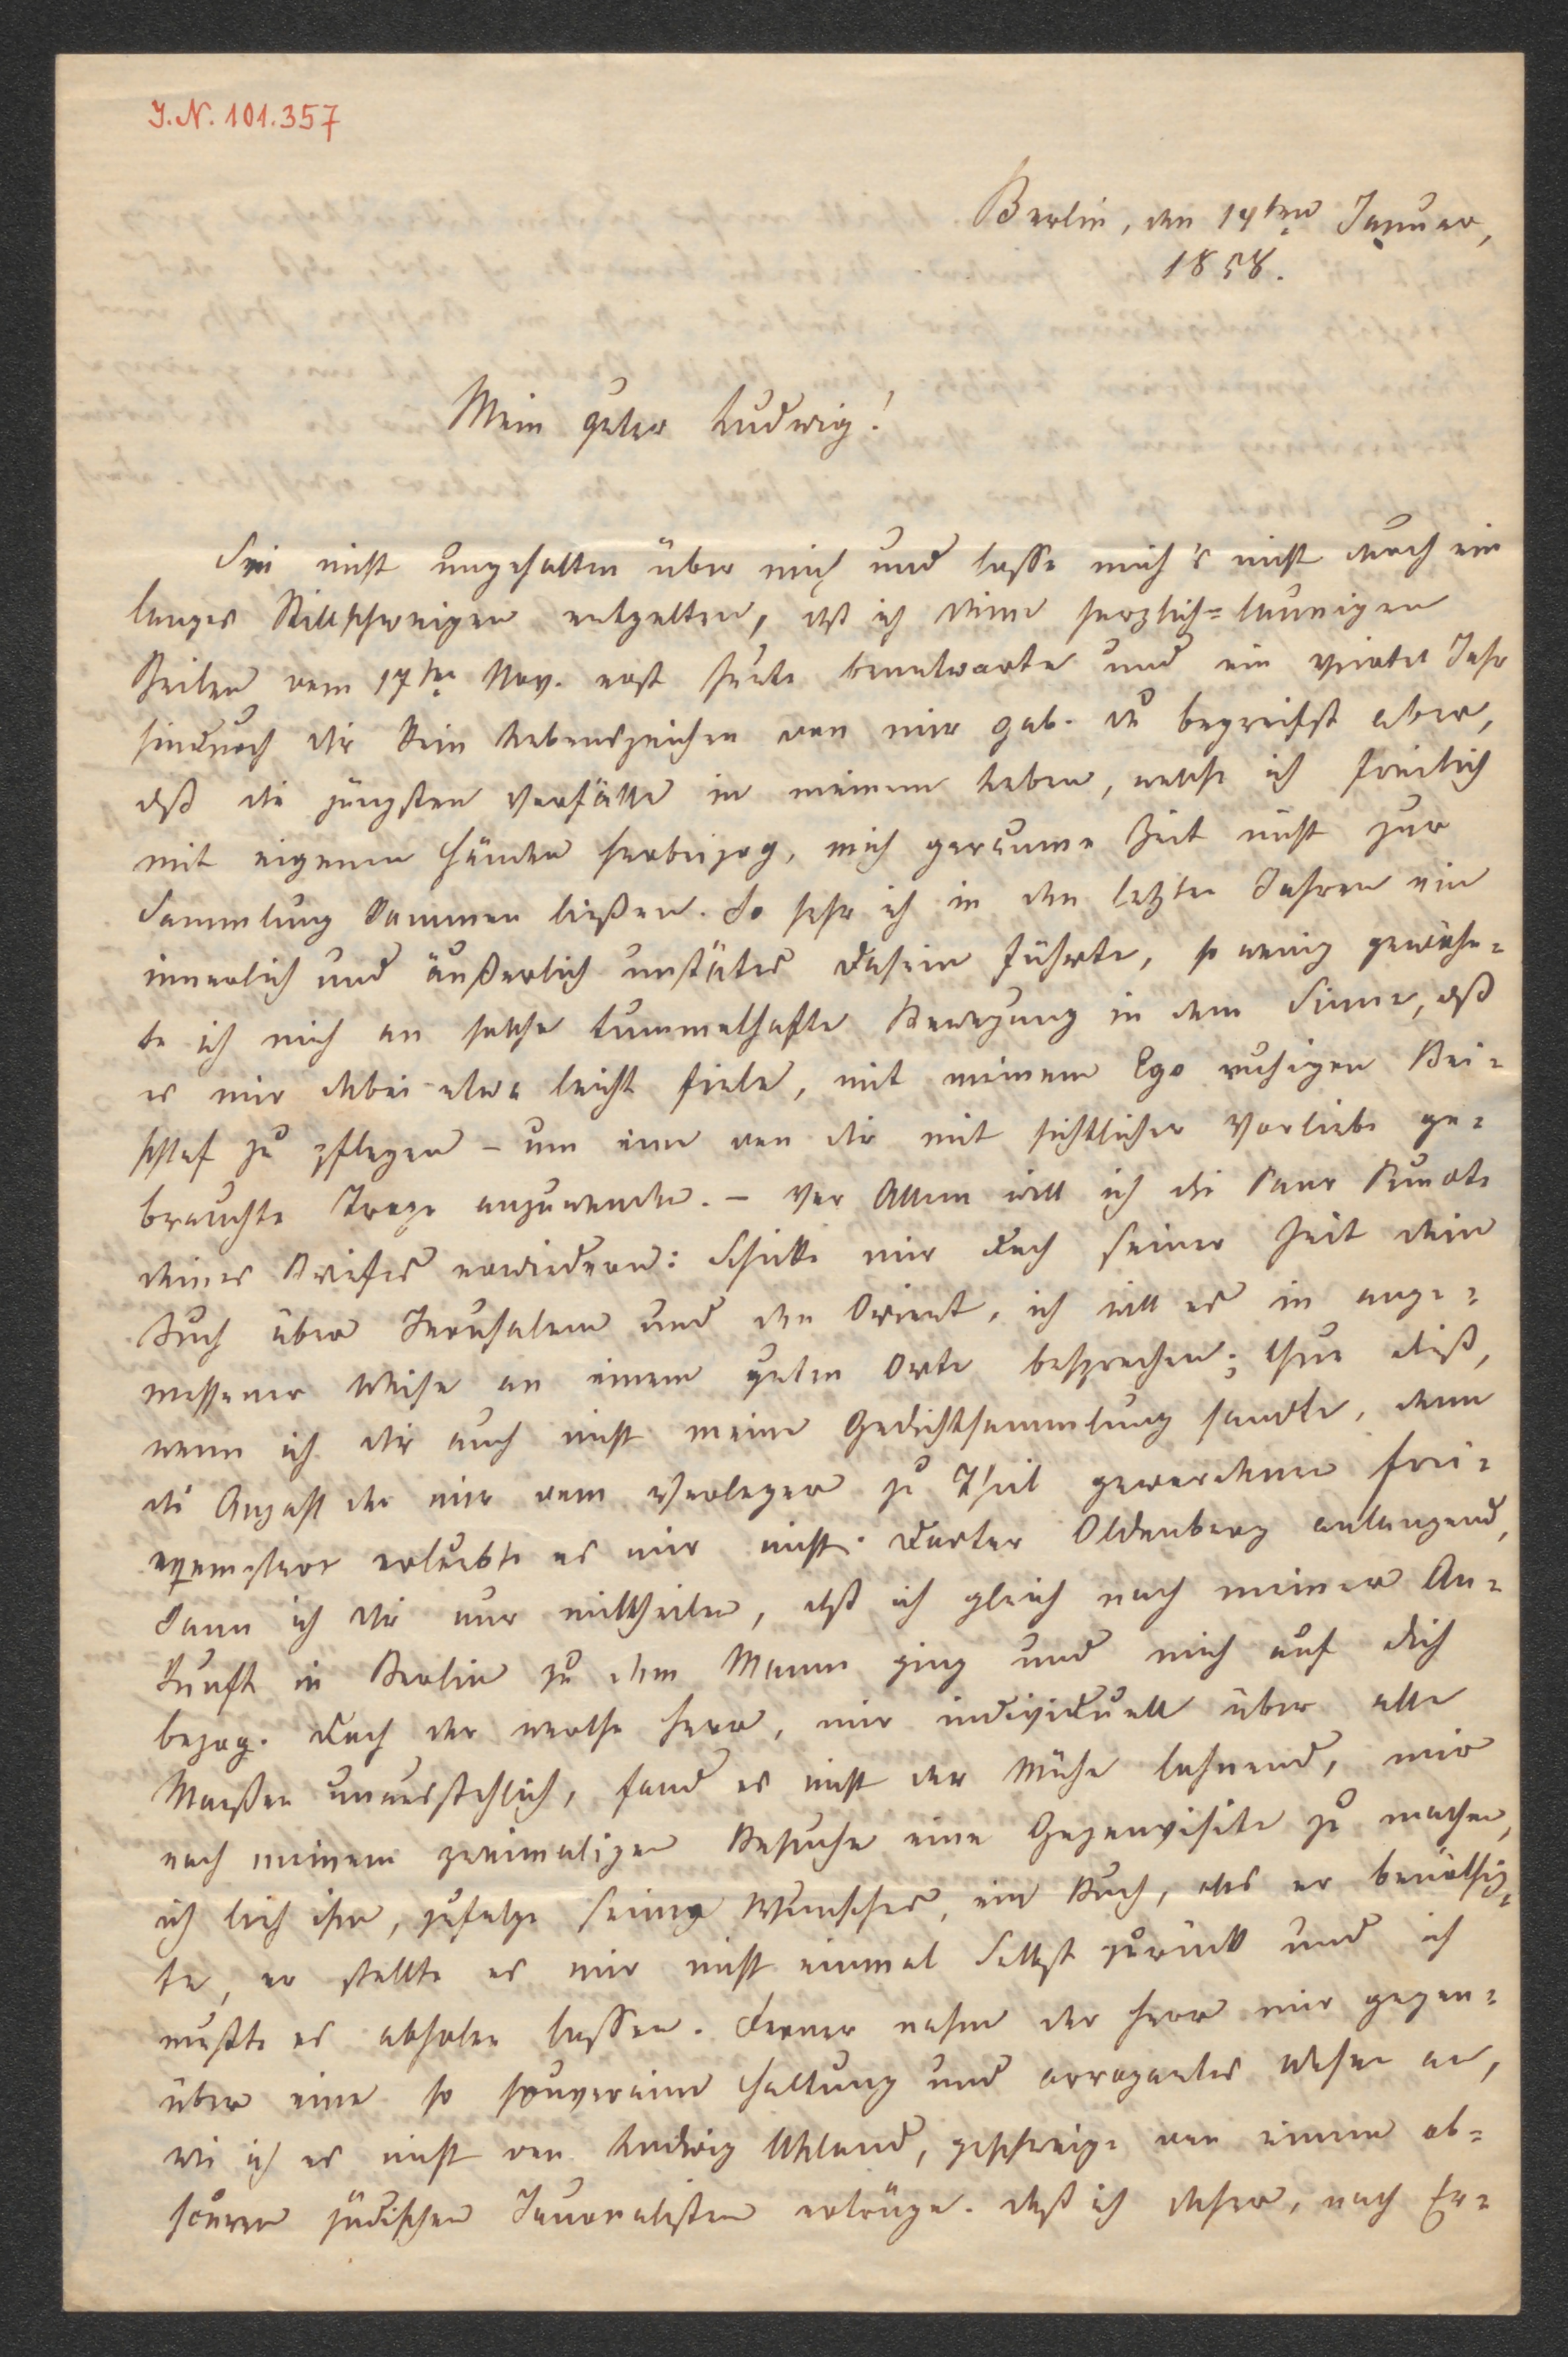 I.N. 101.357
Berlin, den 14ten Januar,
1858.
Mein guter Ludwig!
Sei nicht ungehalten über mich und lasse mich's nicht durch ein
langes Stillschweigen entgelten, daß ich deine herzlich-launigen
Zeilen vom 17ten Nov. erst heute beantworte und ein viertel Jahr
hindurch dir kein Lebenszeichen von mir gab. Du begreifst aber,
daß die jüngsten Vorfälle in meinem Leben, welche ich freilich
mit eigenen Händen herbeizog, mich geraume Zeit nicht zur
Sammlung kommen ließen. So sehr ich in den letzten Jahren ein
innerlich und äußerlich unstätes Dasein führte, so wenig gewöhn-
te ich mich an solche tummelhafte Bewegung in dem Sinne, daß
es mir dabei etwa leicht fiele, mit meinem Ego ruhigen Bei-
schlaf zu pflegen – um eine von dir mit sichtlicher Vorliebe ge-
brauchte Trope anzuwenden. – Vor Allem will ich die paar Punkte
deines Briefes erwiedern: Schicke mir doch seiner Zeit dein
Buch über Jerusalem und den Orient, ich will es in ange-
messener Weise an einem guten Orte besprechen; thue dieß,
wenn ich dir auch nicht meine Gedichtsammlung sandte, denn
die Anzahl der mir vom Verleger zu Theil gewordenen Frei-
exemplare erlaubte es mir nicht. Doctor Oldenberg anlangend,
kann ich dir nur mittheilen, daß ich gleich nach meiner An-
kunft in Berlin zu dem Manne ging und mich auf dich
bezog. Doch der werthe Herr, mir individuell über alle
Maaßen unausstehlich, fand es nicht der Mühe lohnend, mir
nach meinem zweimaligen Besuche eine Gegenvisite zu machen,
ich lieh ihm, zufolge seines Wunsches, ein Buch, das er benöthig-
te, er stellte es mir nicht einmal selbst zurück und ich
mußte es abholen lassen. Ferner nahm der Herr mir gegen-
über eine so souveraine Haltung und arrogantes Wesen an,
wie ich es nicht von Ludwig Uhland, geschweige von einem ob-
scuren jüdischen Journalisten ertrüge. Daß ich daher, nach Er-